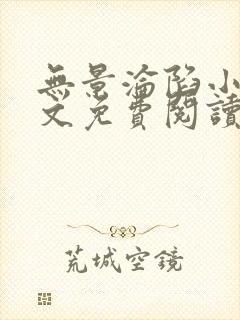 無景淪陷小
文免費閱讀
荒城空鏡